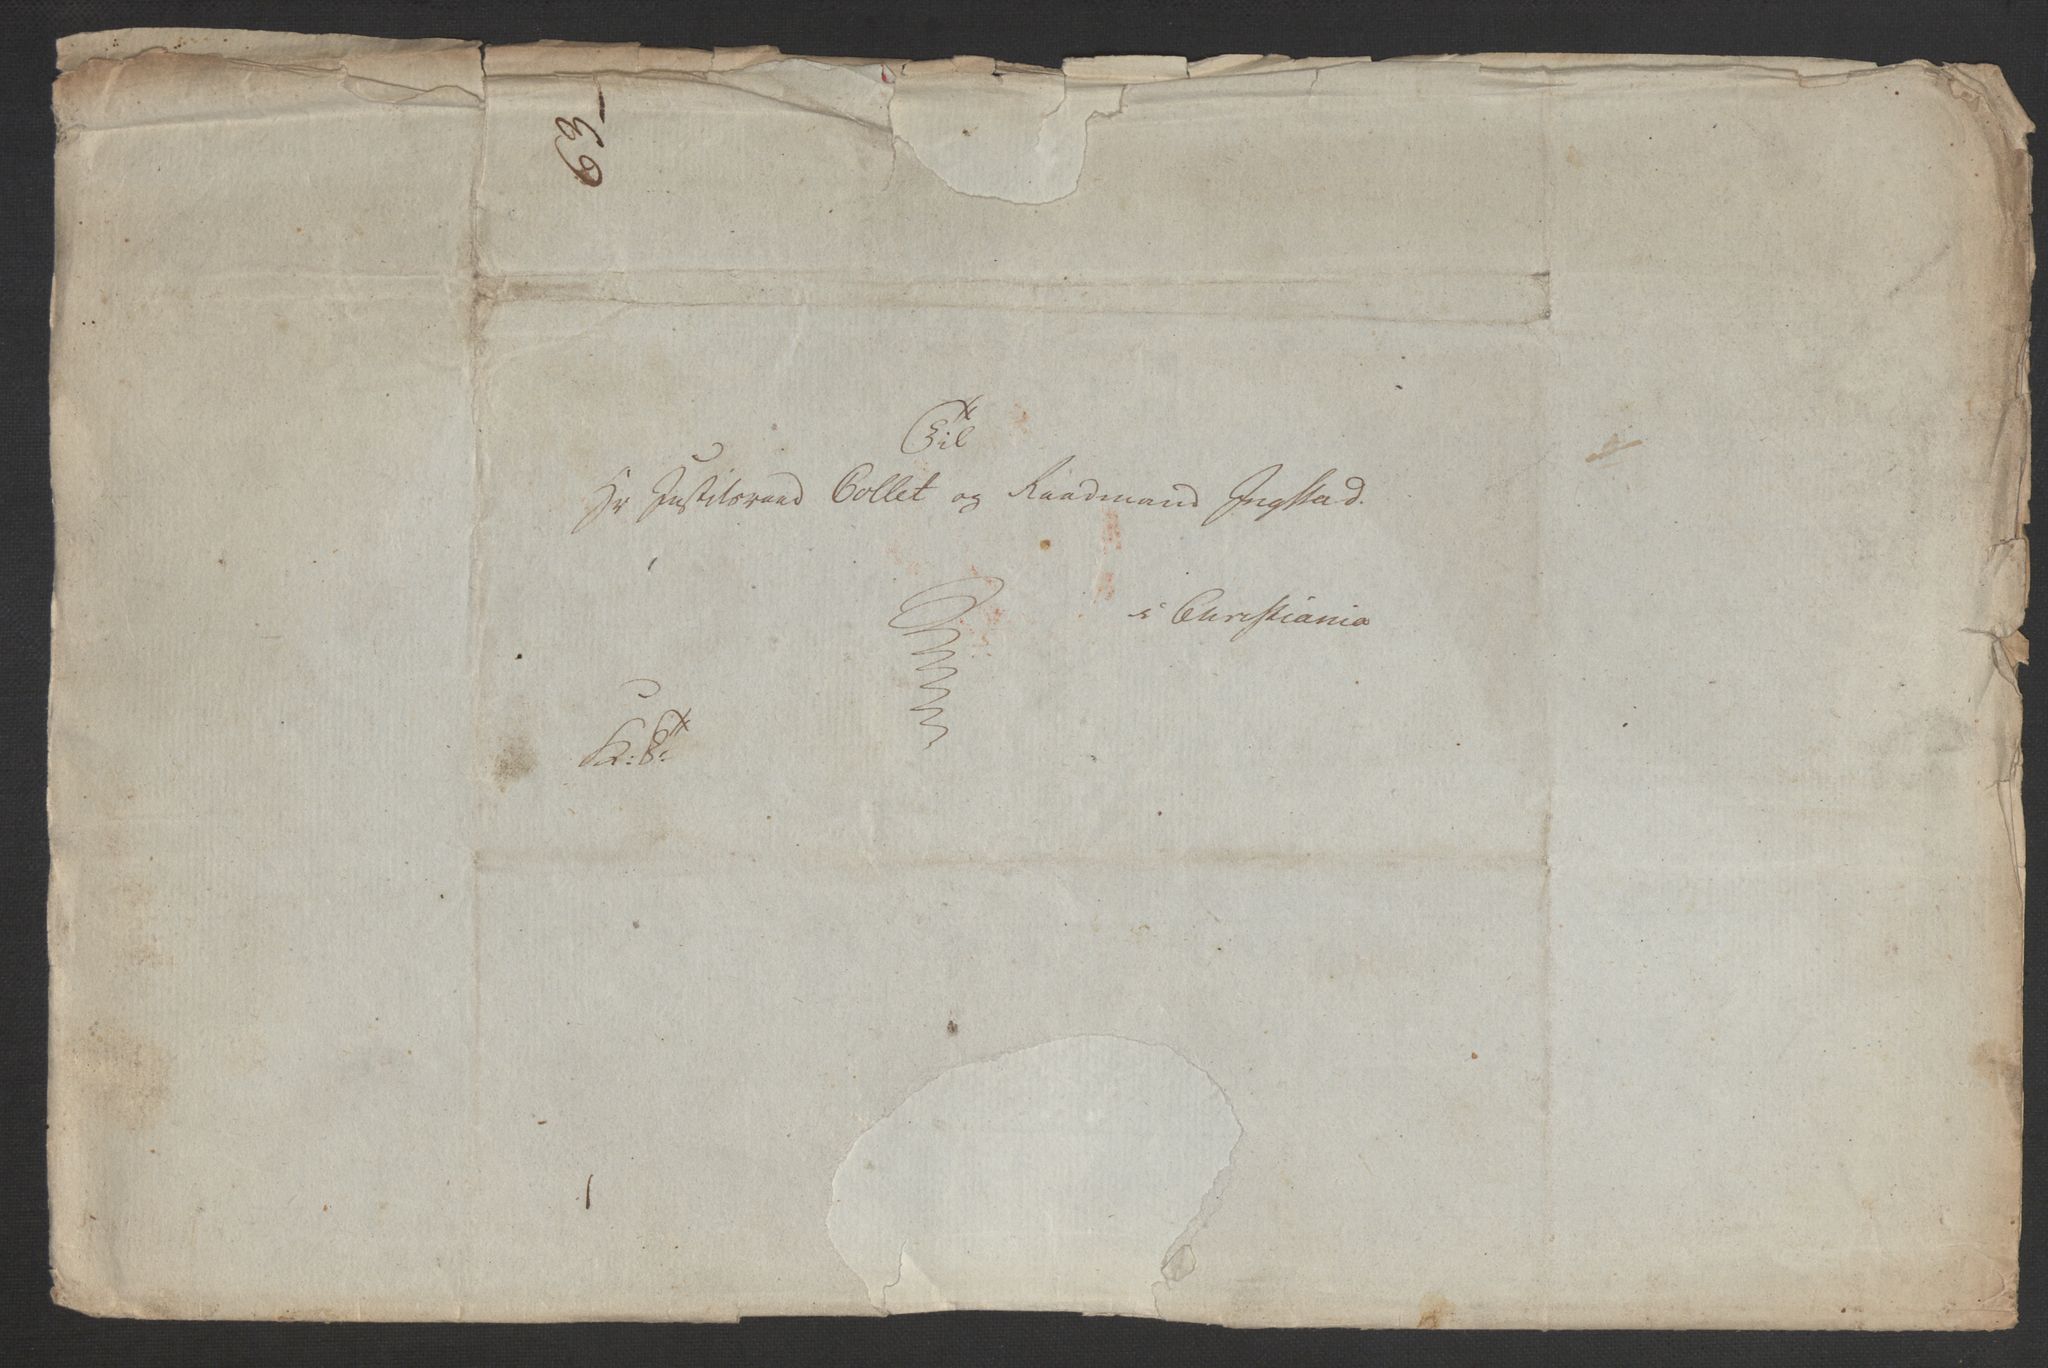 63
Til
Hr Justitsraad Collet og Raadmand Ingstad.
i Christiania
K: T: